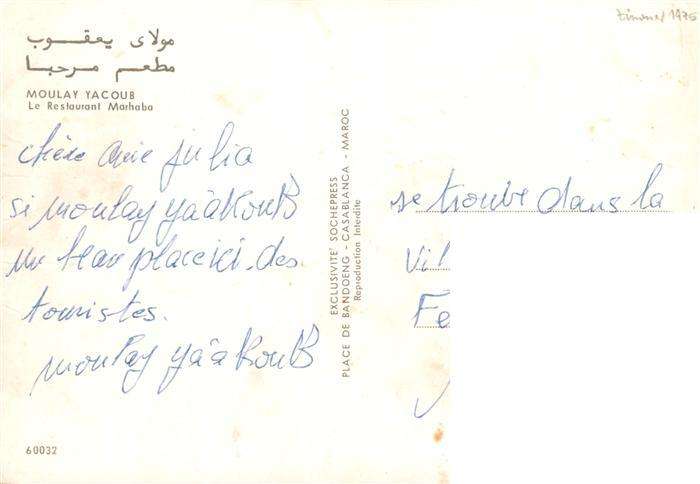 مولاى يعقــوب
مطعـم مـرحبـا
MOULAY YACOUB
Le Restaurant Marhaba
chère amie julia
si moulay yaâkouB
un beau place ici des
touristes.
moulay yaâkouB
60032
EXCLUSIVITÉ SOCHEPRESS
PLACE DE BANDOENG - CASABLANCA - MAROC
Reproduction Interdite
1975
se trouve dans la
Vil
Fe